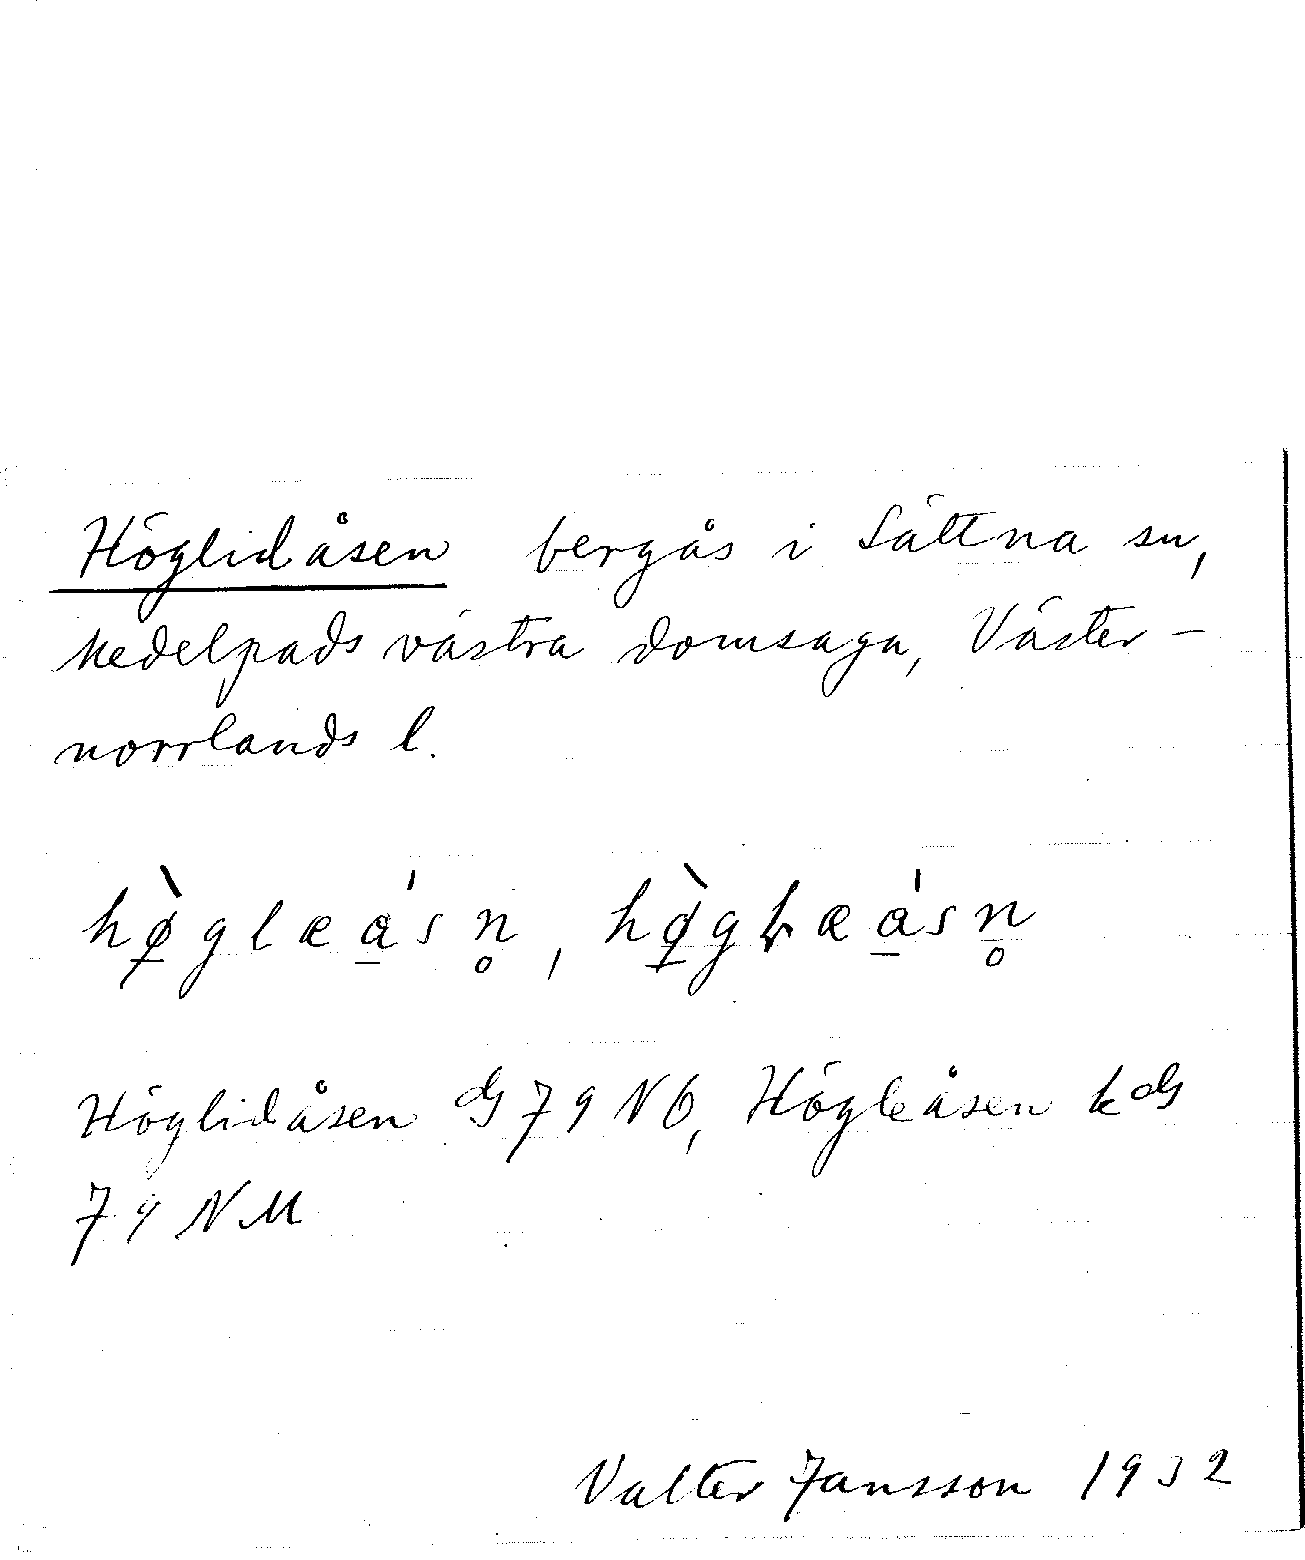 Höglidåsen bergås i Sättna sn,
Medelpads västra domsaga, Väster-
norrlands l.
hø̠̀glæa̠̍sn̥, hø̠̀gɽæa̠̍sn̥
Höglidåsen ds 79 NÖ, Högleåsen kds
79 NM
Valter Jansson 1932